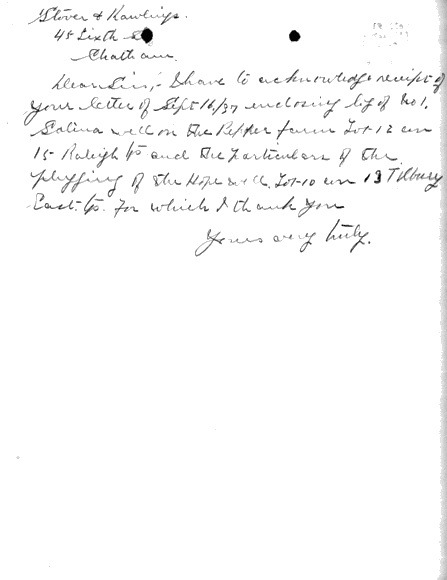 Glover & Rawlings.
48 Sixth St
Chatham.
Dear Sir,- I have to acknowledge receipt of
your letter of Sept 16/37 enclosing log of No 1,
Salina well on the Pepper farm Lot-12 con
15 Raleigh tp and the particulars of the
plugging of the Hope well. Lot-10 con 13 Tilbury
East. tp. For which I thank you
Yours very truly.